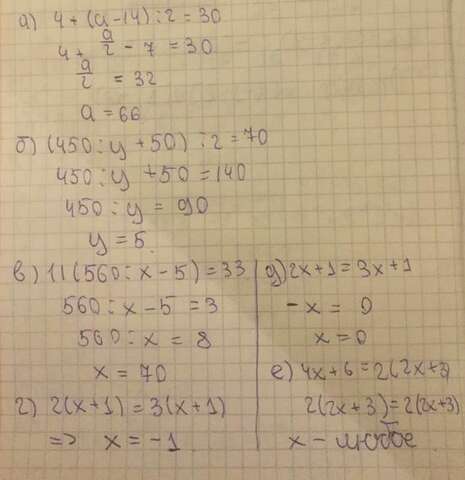 а) 4 + (a - 14) : 2 = 30
4 + a/2 - 7 = 30
a/2 = 32
a = 66
б) (450 : y + 50) : 2 = 70
450 : y + 50 = 140
450 : y = 90
y = 5
в) 11(560 : x - 5) = 33
560 : x - 5 = 3
560 : x = 8
x = 70
г) 2(x+1) = 3(x+1)
=> x = -1
д) 2x+1 = 3x+1
-x = 0
x = 0
е) 4x+6 = 2(2x+3)
2(2x+3) = 2(2x+3)
x - любое